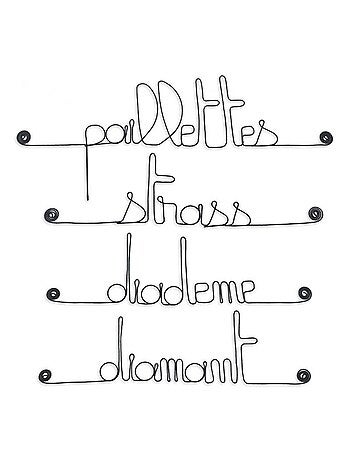 paillettes
strass
diademe
diamant